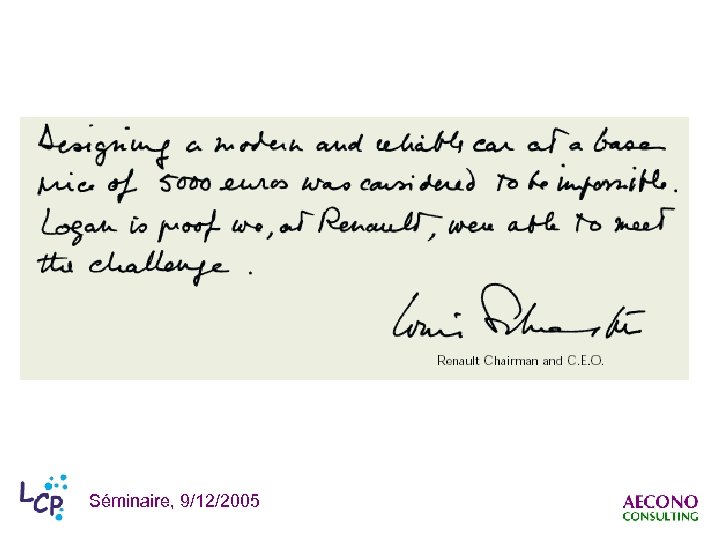 Designing a modern and reliable car at a base
price of 5000 euros was considered to be impossible.
Logan is proof we, at Renault, were able to meet
the challenge.
Louis Schweitzer
Renault Chairman and C.E.O.
LCP
Séminaire, 9/12/2005
AECONO
CONSULTING